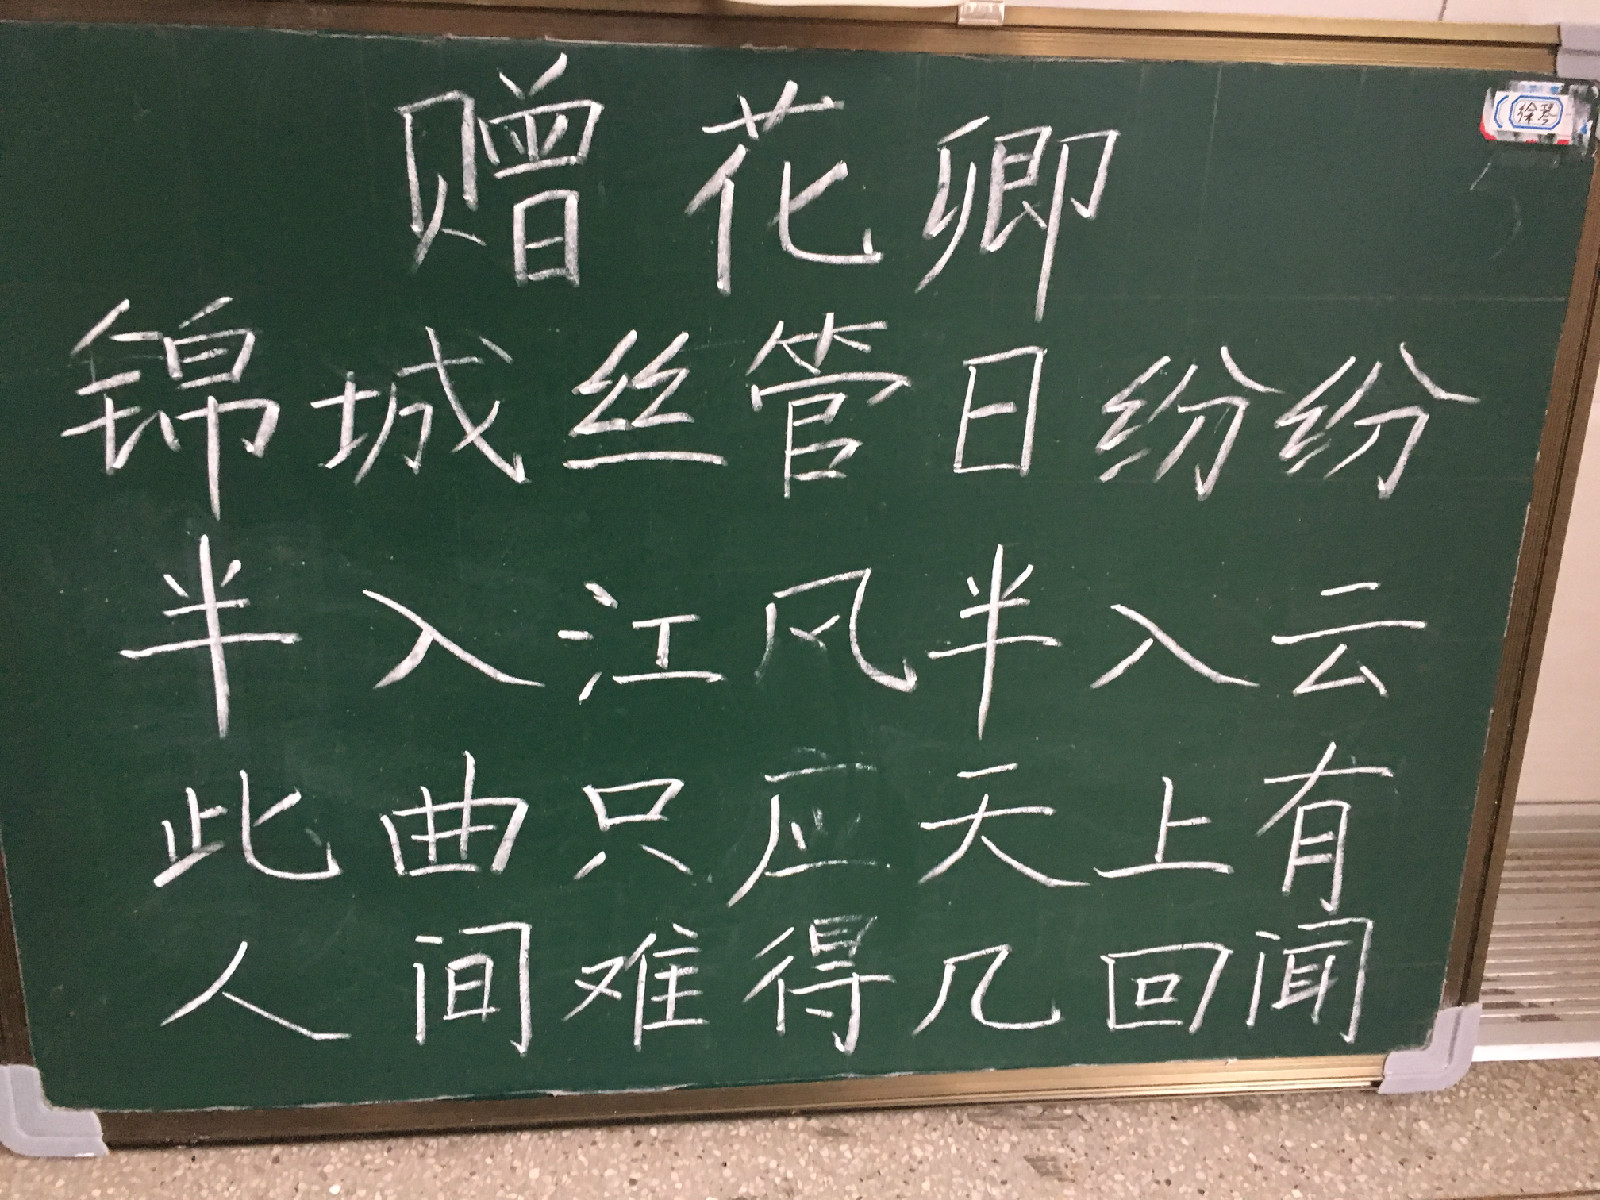 赠花卿
徐琴
锦城丝管日纷纷
半入江风半入云
此曲只应天上有
人间难得几回闻